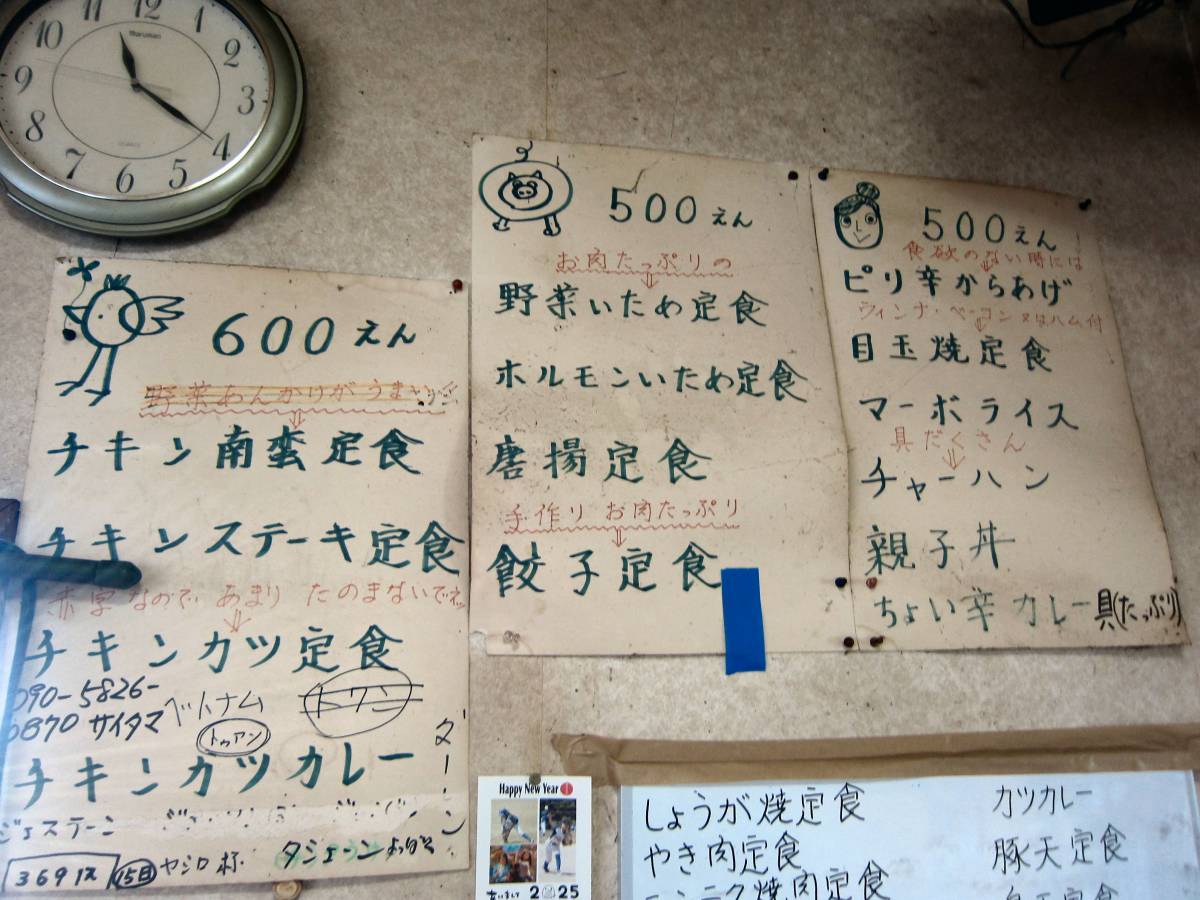 12
11
1
10
2
9
3
8
4
7
5
6
Marusan
600えん
野菜あんかけがうまい
チキン南蛮定食
チキンステーキ定食
赤字なので あまり たのまないでネ
チキンカツ定食
090-5826-
ベトナム
トワン
サイタマ
トゥアン
チキンカツカレー
ダーーン
ジェステーン
15日
ヤシロ様
タジェーン
500えん
お肉たっぷりの
野菜いため定食
ホルモンいため定食
唐揚定食
手作り お肉たっぷり
餃子定食
500えん
食欲のない時には
ピリ辛からあげ
ウィンナ・ベーコン又はハム付
目玉焼定食
マーボライス
具だくさん
チャーハン
親子丼
ちょい辛カレー具(たっぷり)
Happy New Year
2025
しょうが焼定食
カツカレー
やき肉定食
豚天定食
ニンニク焼肉定食